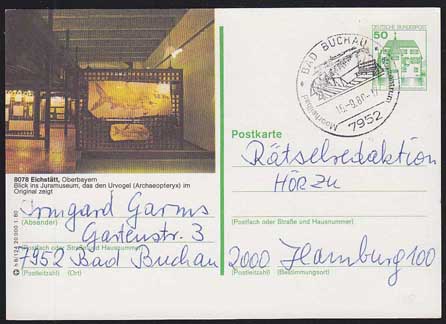 50 DEUTSCHE BUNDESPOST
BAD BUCHAU
Moorheilbad
15.-9.80.-17
7952
8078 Eichstätt, Oberbayern
Blick ins Juramuseum, das den Urvogel (Archaeopteryx) im
Original zeigt
Postkarte
Rätselredaktion
HÖRZU
Irmgard Garms
(Absender)
(Postfach oder Straße und Hausnummer)
Gartenstr. 3
(Postfach oder Straße und Hausnummer)
7952 Bad Buchau
2000 Hamburg 100
(Postleitzahl) (Ort)
(Postleitzahl) (Bestimmungsort)